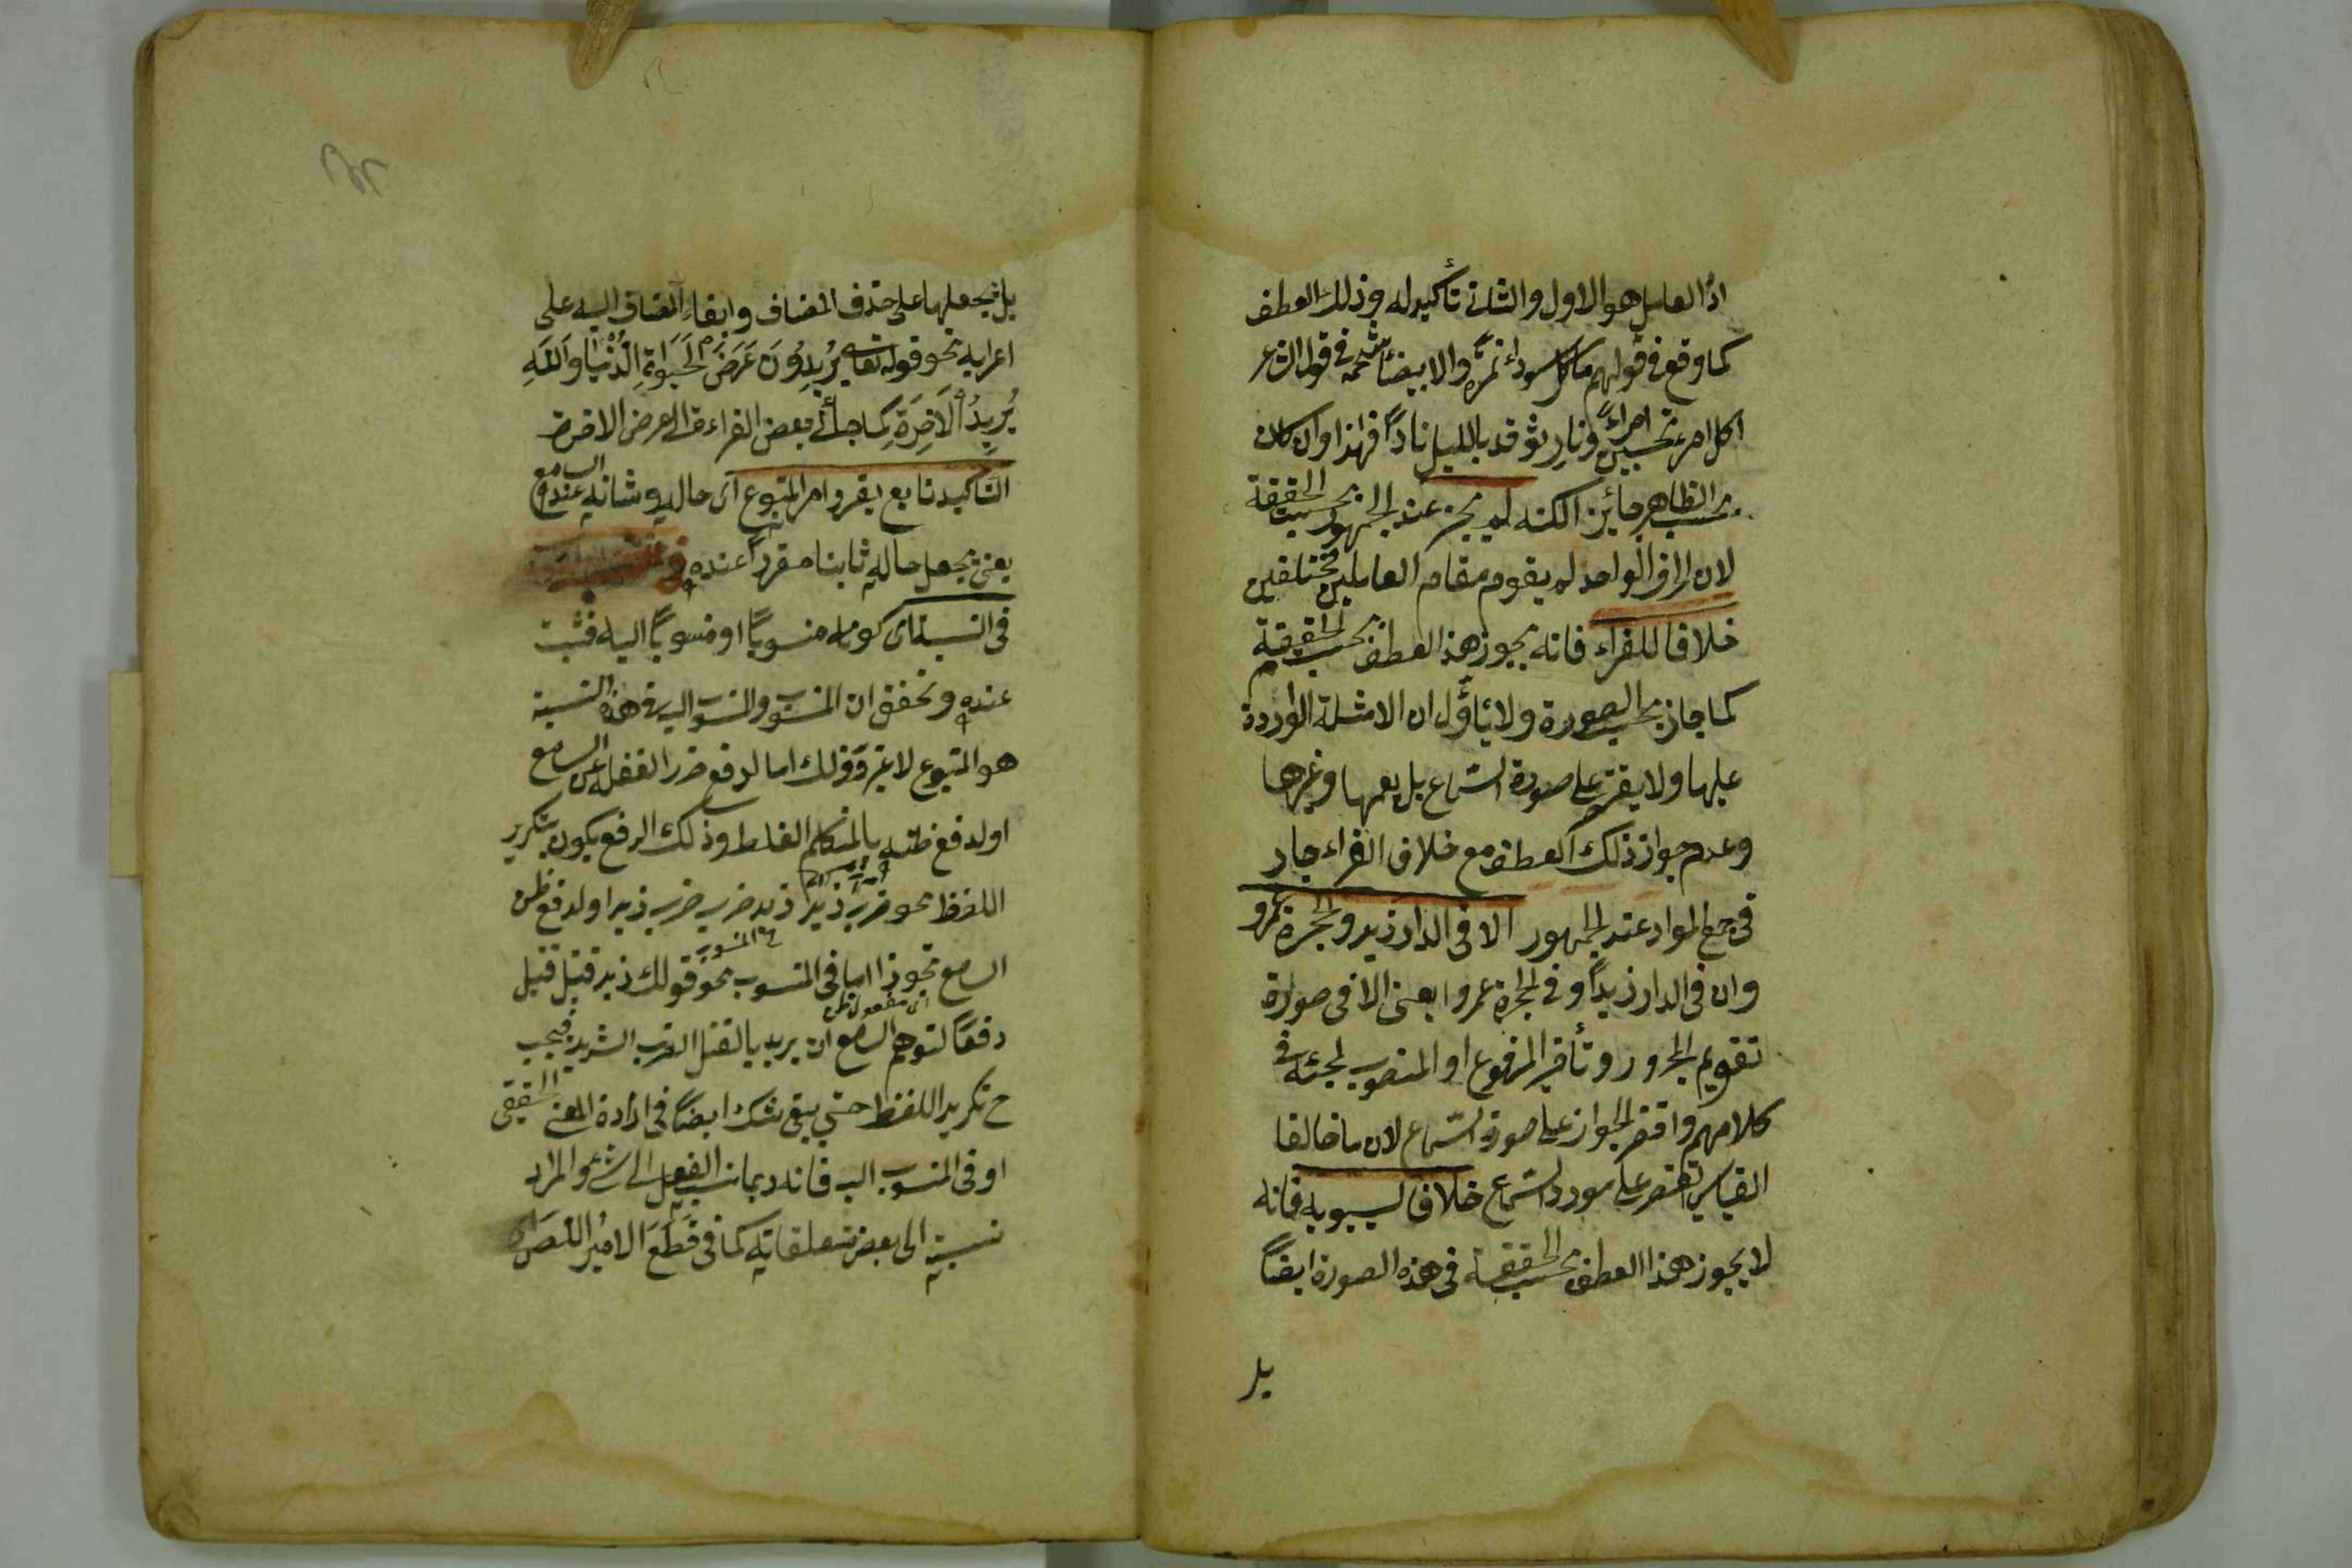 اذ العامل هو الاول والثانى تأكيد له وذلك العطف
كما وقع فى قولهم ما كل سوداء تمرة والا بيضاء شحمة فى قول الشاعر
اكل امرء تحسبين امراءً ونار توقد بالليل ناراً فهذا وان كان
بحسب الظاهر جائز الكنه لم يجز عند الجمهور بحسب الحقيقة
لان الحرف الواحد لم يقوم مقام العاملين مختلفين
خلافا للفراء فانه يجوز هذا العطف بحسب الحقيقة
كما جاز بحسب الصورة ولا يأول ان الامثلة الواردة
عليها ولا يقتصر على صورة السماع بل يعمها وغيرها
وعدم جواز ذلك العطف مع خلاف الفراء جار
فى جميع المواد عند الجمهور الا فى الدار زيد والحجرة عمرو
وان فى الدار زيداً وفى الحجرة عمروا يعنى الا فى صورة
تقديم المجرور وتأخير المرفوع او المنصوب لمجئه فى
كلامهم واقتصر الجواز على صورة السماع لان ما خالفا
القياس تقتصر على مورد السماع خلافا لسيبويه فانه
لا يجوز هذا العطف بحسب الحقيقة فى هذه الصورة ايضاً
بل
بل يجعلها على حذف المضاف وابقاء المضاف اليه على
اعرابه نحو قوله تعا يُرِيدُونَ عَرَضَ الحَيَوةِ الدُّنْيَا واَللَهِ
يُرِيدُ الَاخِرَةِ كما جاء فى بعض القراءة اى عرض الاخرة
التاكيد تابع يقرر امر المتبوع اى حاله وشانه عند السامع
يعنى يجعل حاله ثابتا مقرراً عنده فى
فى النسبة اى كونه منسوباً او منسوباً اليه فثبت
عنده وتحقق ان المنسوب والمنسوب اليه فى هذه النسبة
هو المتبوع لا غير وذلك اما لدفع ضرر الغفلة عن السامع
او لدفع ظنه بالمتكلم الغلط وذلك الدفع يكون بتكرير
اللفظ نحو ضرب زيد زيد ضرب ضرب زيد او لدفع ظن
السامع تجوزا اما فى المنسوب نحو قولك زيد قتيل قتيل
اى مفعول ظن
دفعاً لتوهم السامع ان يريد بالقتل الضرب الشديد فيجب
ح تكرير اللفظ حتى يبقى شك ايضاً فى ارادة المعنى الحقيقى
او فى المنسوب اليه فانه ربما نسب الفعل الى شئ والمراد
نسبته الى بعض متعلقاته كما فى قَطَعَ الاميُر اللّصَ اى